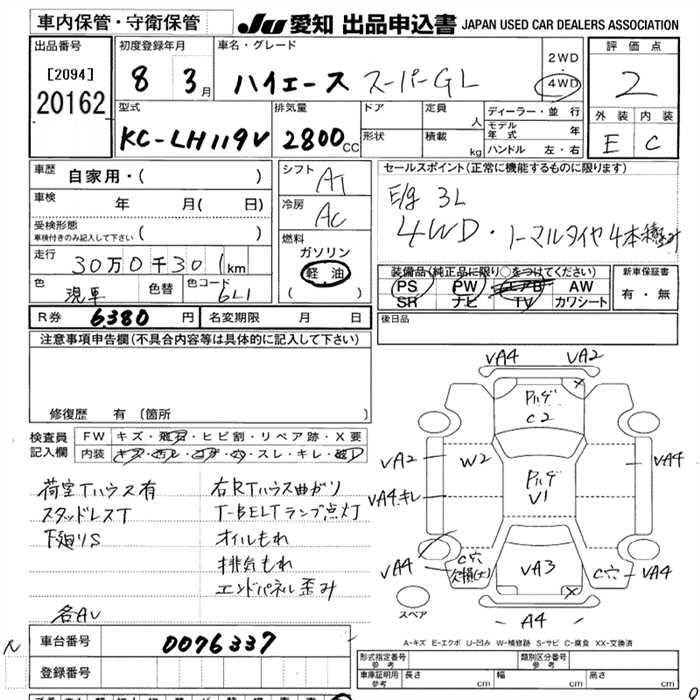 車内保管・守衛保管
JU 愛知 出品申込書 JAPAN USED CAR DEALERS ASSOCIATION
出品番号
[2094]
20162
初度登録年月
8 3月
車名・グレード
ハイエース スーパーGL
2WD
・
4WD
評価点
2
外装 内装
E C
型式
KC-LH119V
排気量
2800cc
ドア
形状
定員
人
積載
kg
ディーラー・並行
モデル年式 年
ハンドル 左・右
車歴
自家用・( )
車検
年 月( 日)
受検形態
車検付きのみ記入して下さい ( )
走行
30万0千301km
色
現車
色替
色コード
6L1
シフト
AT
冷房
AC
燃料
ガソリン
軽油
( )
セールスポイント(正常に機能するものに限ります)
E/g 3L
4WD・ノーマルタイヤ4本積み
装備品(純正品に限り○をつけてください)
PS PW エアB AW
SR ナビ TV カワシート
新車保証書
有・無
後日品
R券 6380円
名変期限 月 日
注意事項申告欄(不具合内容等は具体的に記入して下さい)
修復歴 有〔箇所
検査員
記入欄
FW キズ・飛石・ヒビ割・リペア跡・X要
内装 キズ・汚レ・コゲ・穴・スレ・キレ・破レ
荷室Tハウス有
スタッドレスT
下廻りS
各AU
右RTハウス曲がり
T-BELTランプ点灯
オイルもれ
排気もれ
エンドパネル歪み
車台番号
0076337
登録番号
VA4
VA2
Pハゲ
C2
VA2
W2
Pハゲ
V1
VA4
VA4.キレ
VA4
C穴
欠損(大)
VA3
C穴
VA4
スペア
A4
A-キズ E-エクボ U-凹み W-補修跡 S-サビ C-腐食 XX-交換済
形式指定番号
参考
類別区分番号
参考
車庫証明用
参考
長さ cm
幅 cm
高さ cm